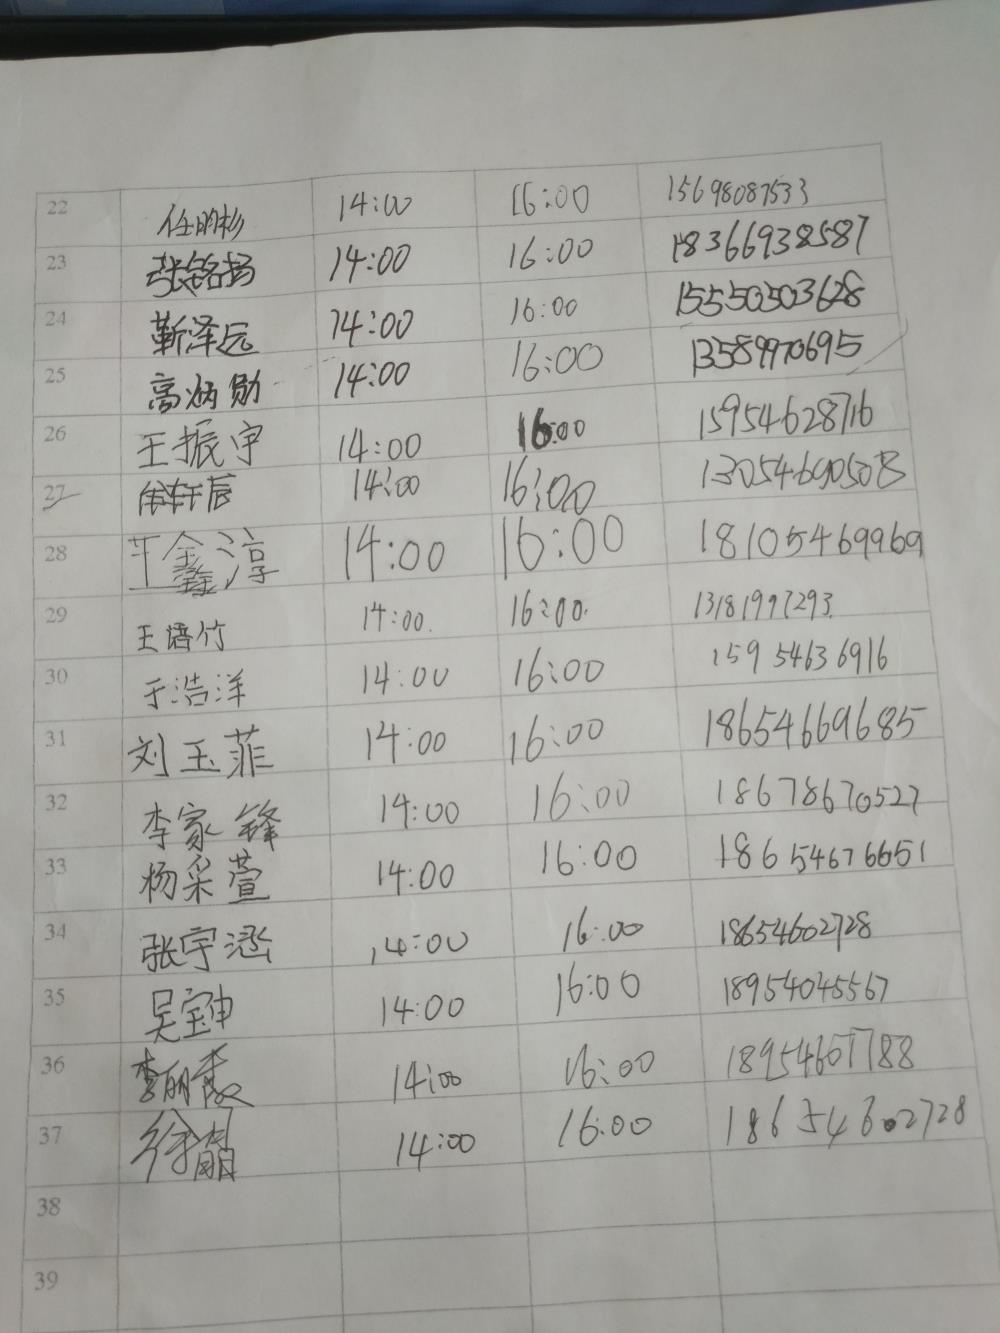 22 任昀杉 14:00 16:00 15698087533
23 张铭扬 14:00 16:00 18366938587
24 靳泽远 14:00 16:00 15550503628
25 高炳勋 14:00 16:00 13589970695
26 王振宇 14:00 16:00 15954628716
27 轩辰 14:00 16:00
28 王鑫淳 14:00 16:00 18105469969
29 王语竹 14:00. 16:00. 13181997293.
30 于浩洋 14:00 16:00 15954636916
31 刘玉菲 14:00 16:00 18654669685
32 李家锋 14:00 16:00 18678670527
33 杨采萱 14:00 16:00 18654676651
34 张宇涵 14:00 16:00 18654602728
35 吴宝坤 14:00 16:00 18954045567
36 李丽 14:00 16:00 18954607788
37 徐 14:00 16:00 18654602728
38
39